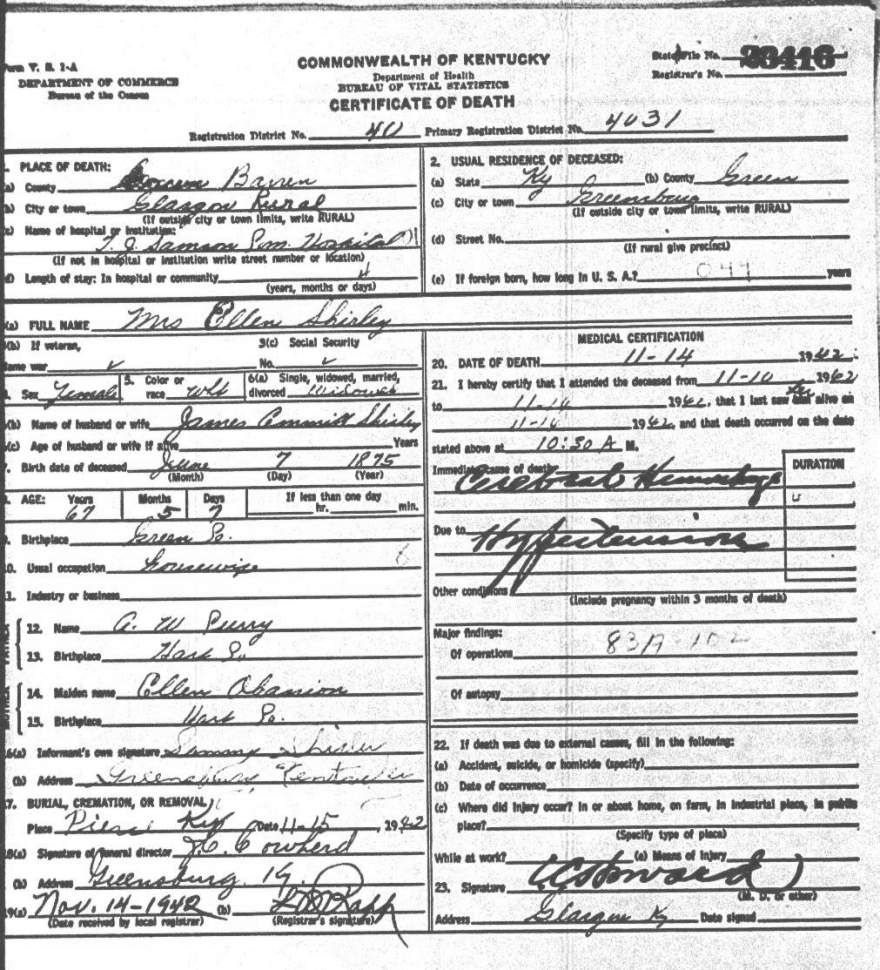 Form V. S. 1-A
DEPARTMENT OF COMMERCE
Bureau of the Census
COMMONWEALTH OF KENTUCKY
Department of Health
BUREAU OF VITAL STATISTICS
CERTIFICATE OF DEATH
State File No. 23416
Registrar's No.
Registration District No. 40 Primary Registration District No. 4031
1. PLACE OF DEATH:
(a) County Barren
(b) City or town Glasgow Rural
(If outside city or town limits, write RURAL)
(c) Name of hospital or institution:
T. J. Samson Com. Hospital
(If not in hospital or institution write street number or location)
(d) Length of stay: In hospital or community 4
(years, months or days)
2. USUAL RESIDENCE OF DECEASED:
(a) State Ky (b) County Green
(c) City or town Greensburg
(If outside city or town limits, write RURAL)
(d) Street No.
(If rural give precinct)
(e) If foreign born, how long in U. S. A.? 044 years
3(a) FULL NAME Mrs Ellen Shirley
3(b) If veteran, 3(c) Social Security
name war No.
4. Sex Female 5. Color or race Wht 6(a) Single, widowed, married, divorced Widowed
6(b) Name of husband or wife James Shirley
6(c) Age of husband or wife if alive Years
7. Birth date of deceased June 7 1875
(Month) (Day) (Year)
8. AGE: Years Months Days If less than one day
67 5 7 hr. min.
9. Birthplace Green Co.
10. Usual occupation housewife
11. Industry or business
FATHER
12. Name A. W Perry
13. Birthplace Hart Co
MOTHER
14. Maiden name Ellen Obanion
15. Birthplace Hart Co.
16(a) Informant's own signature Sammy Shirley
(b) Address Greensburg Kentucky
17. BURIAL, CREMATION, OR REMOVAL
Place Pierce Ky Date 11-15, 1942
18(a) Signature of funeral director J. C. Cowherd
(b) Address Greensburg, Ky.
19(a) Nov. 14-1942 (b)
(Date received by local registrar) (Registrar's signature)
MEDICAL CERTIFICATION
20. DATE OF DEATH 11-14 1942.
21. I hereby certify that I attended the deceased from 11-10 1942
to 11-14 1942, that I last saw her alive on
11-14 1942, and that death occurred on the date
stated above at 10:30 A M.
Immediate cause of death DURATION
Cerebral Hemorrhage
Due to Hypertension
Other conditions
(Include pregnancy within 3 months of death)
Major findings:
Of operations 83A-102
Of autopsy
22. If death was due to external causes, fill in the following:
(a) Accident, suicide, or homicide (specify)
(b) Date of occurrence
(c) Where did injury occur? In or about home, on farm, in industrial place, in public
place?
(Specify type of place)
While at work? (e) Means of Injury
23. Signature C Howard
(M. D. or other)
Address Glasgow Ky Date signed